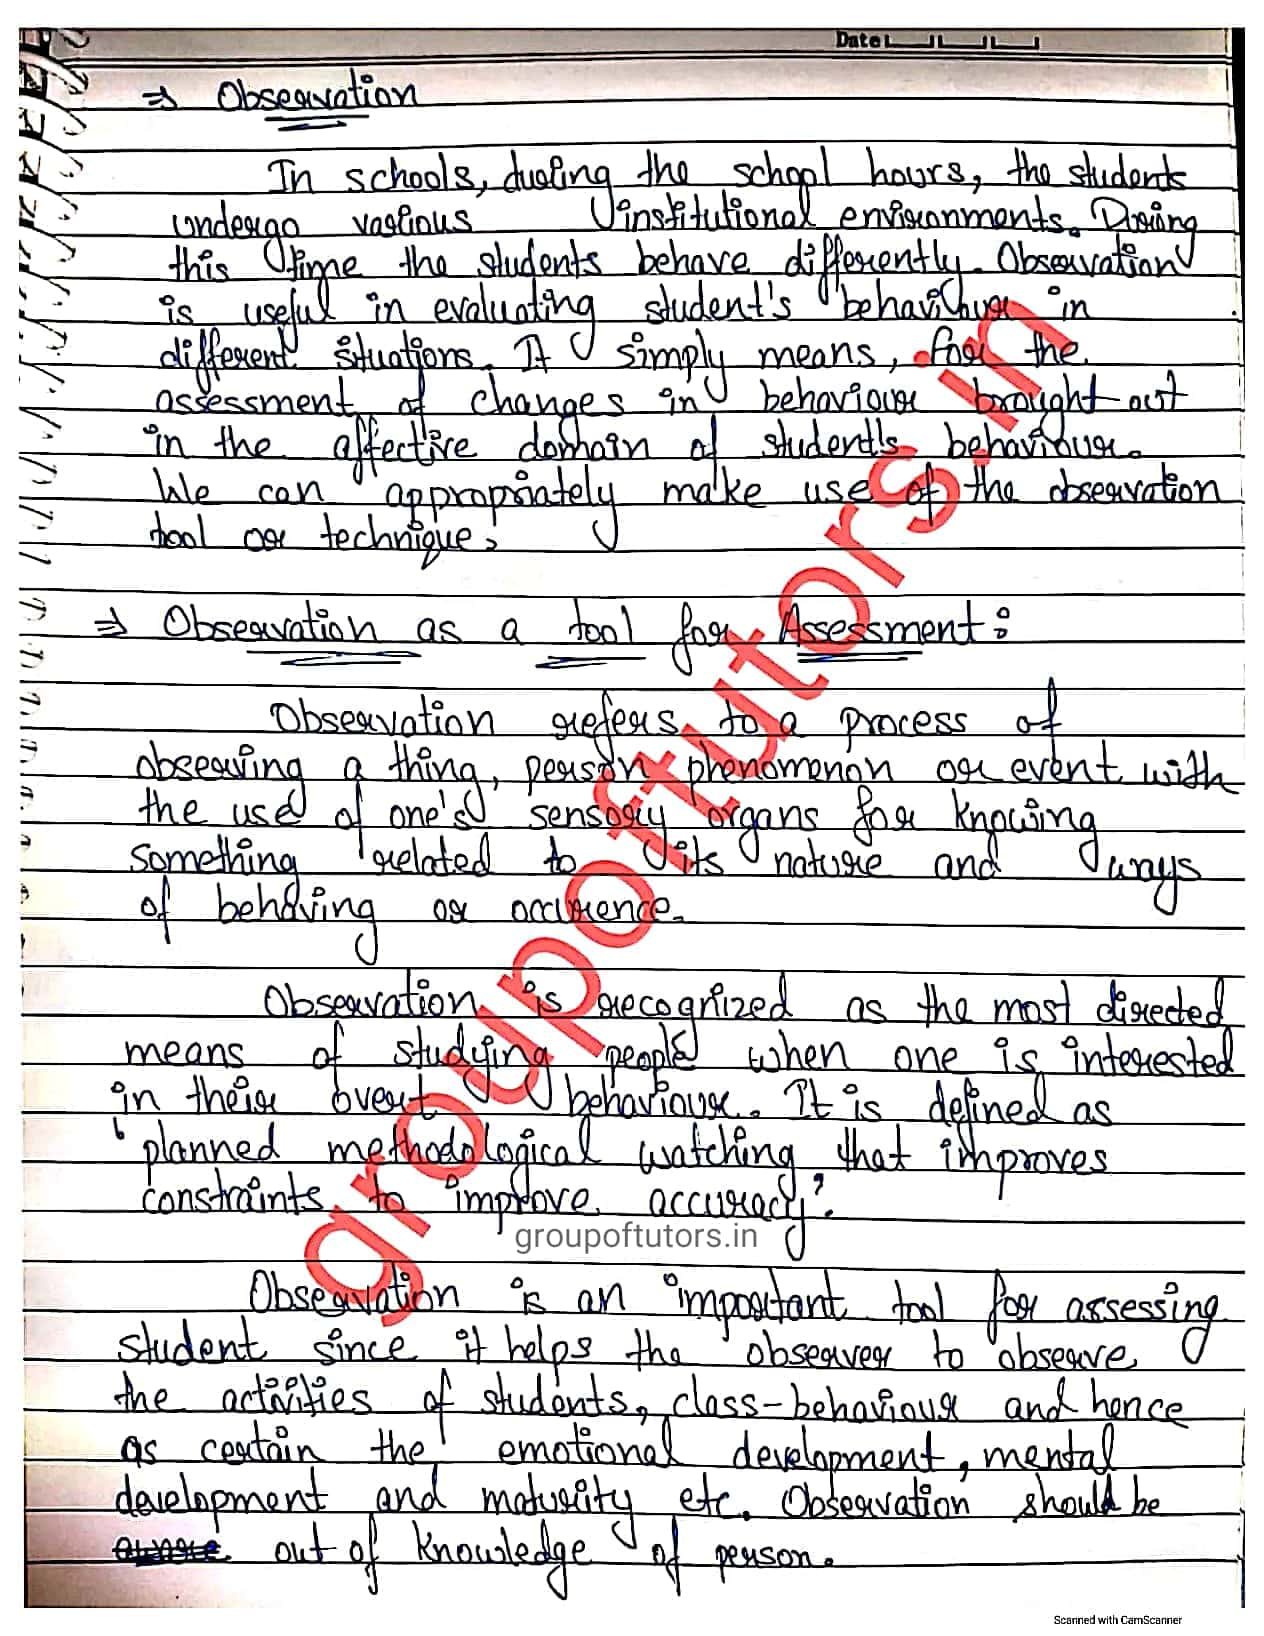 Date
⇒ Observation
In schools, during the school hours, the students
undergo various institutional environments. During
this time the students behave differently. Observation
is useful in evaluating student's behaviour in
different situations. It simply means, for the
assessment of changes in behaviour brought out
in the affective domain of student's behaviour.
We can appropriately make use of the observation
tool or technique.
⇒ Observation as a tool for Assessment:
Observation refers to a process of
observing a thing, person, phenomenon or event with
the use of one's sensory organs for knowing
something related to its nature and ways
of behaving or occurence.
Observation is recognized as the most directed
means of studying people when one is interested
in their overt behaviour. It is defined as
'planned methodological watching that improves
constraints to improve accuracy'.
groupoftutors.in
groupoftutors.in
Observation is an important tool for assessing
student since it helps the observer to observe
the activities of students, class-behaviour and hence
as certain the emotional development, mental
development and maturity etc. Observation should be
out of knowledge of person.
Scanned with CamScanner